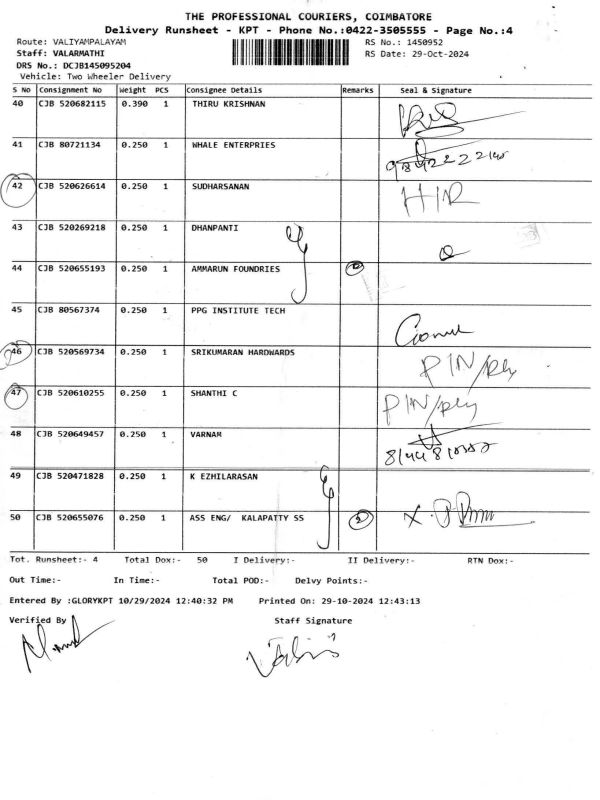 THE PROFESSIONAL COURIERS, COIMBATORE
Delivery Runsheet - KPT - Phone No.:0422-3505555 - Page No.:4
Route: VALIYAMPALAYAM RS No.: 1450952
Staff: VALARMATHI RS Date: 29-Oct-2024
DRS No.: DCJB145095204
Vehicle: Two Wheeler Delivery
S No Consignment No Weight PCS Consignee Details Remarks Seal & Signature
40 CJB 520682115 0.390 1 THIRU KRISHNAN
41 CJB 80721134 0.250 1 WHALE ENTERPRIES
42 CJB 520626614 0.250 1 SUDHARSANAN HIR
43 CJB 520269218 0.250 1 DHANPANTI
44 CJB 520655193 0.250 1 AMMARUN FOUNDRIES
45 CJB 80567374 0.250 1 PPG INSTITUTE TECH
46 CJB 520569734 0.250 1 SRIKUMARAN HARDWARDS PIN/
47 CJB 520610255 0.250 1 SHANTHI C PIN/
48 CJB 520649457 0.250 1 VARNAM
49 CJB 520471828 0.250 1 K EZHILARASAN
50 CJB 520655076 0.250 1 ASS ENG/ KALAPATTY SS 2 X
Tot. Runsheet:- 4 Total Dox:- 50 I Delivery:- II Delivery:- RTN Dox:-
Out Time:- In Time:- Total POD:- Delvy Points:-
Entered By :GLORYKPT 10/29/2024 12:40:32 PM Printed On: 29-10-2024 12:43:13
Verified By Staff Signature